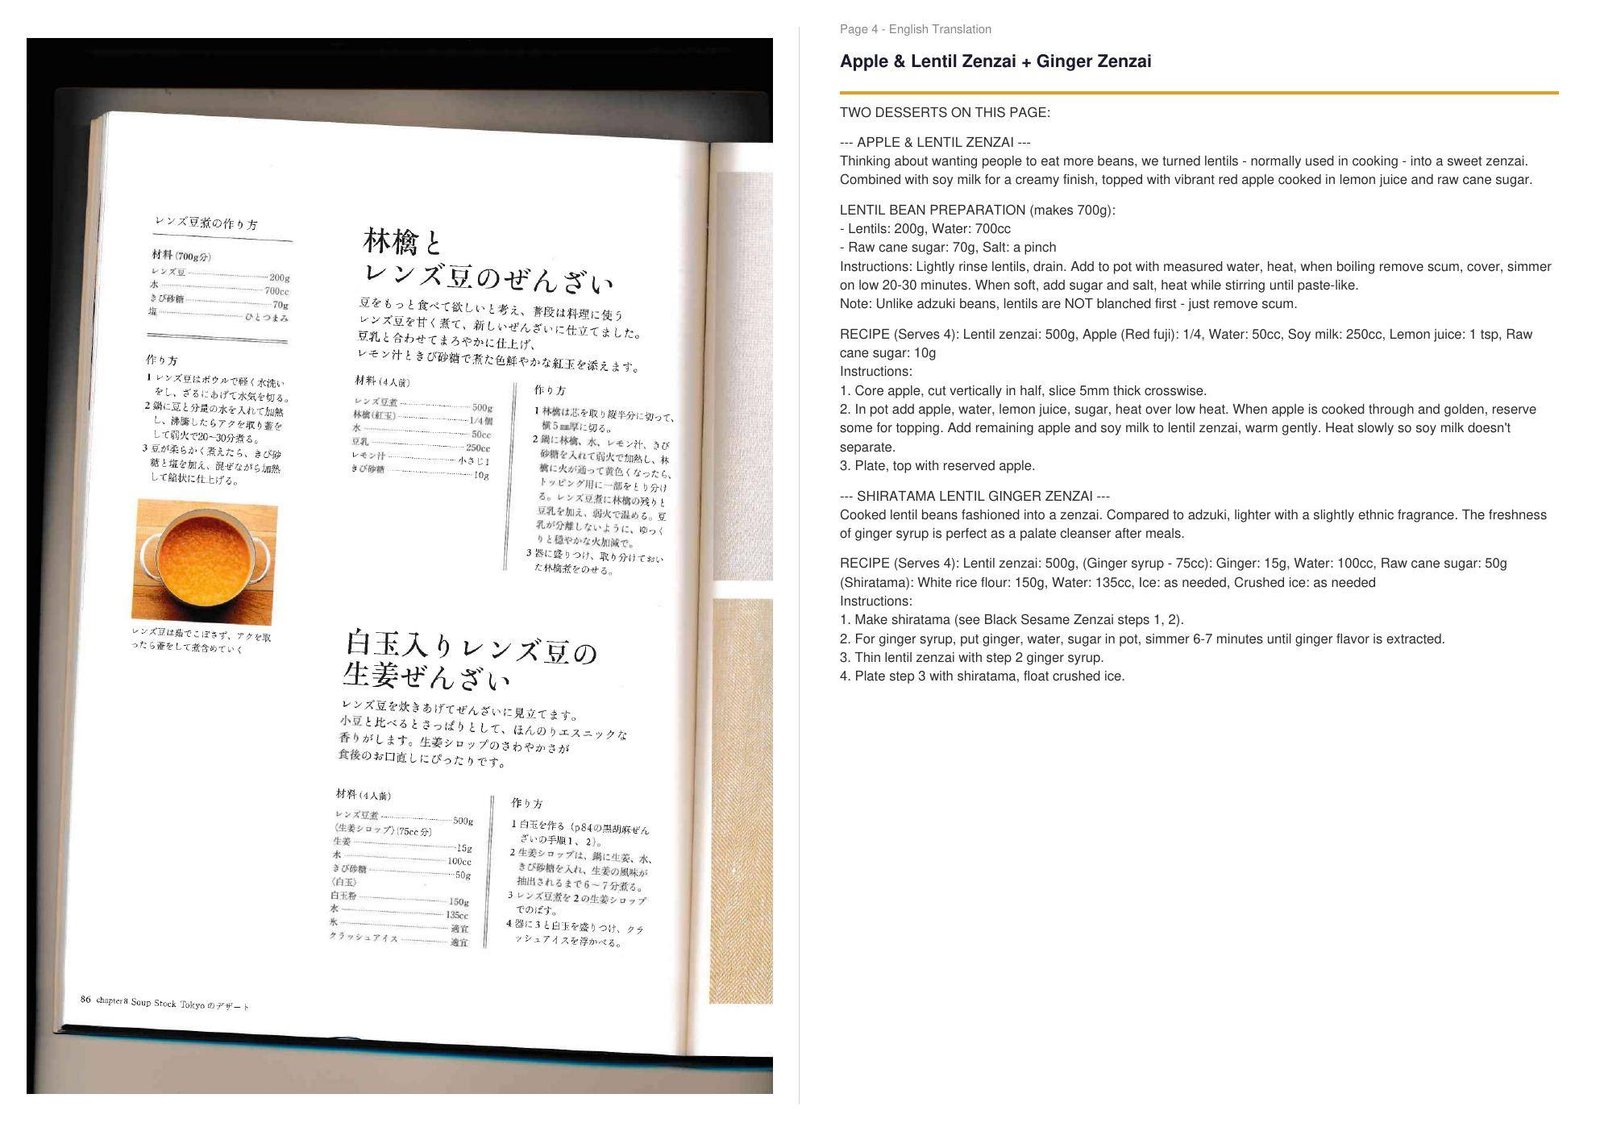 レンズ豆煮の作り方
材料(700g分)
レンズ豆 200g
水 700cc
きび砂糖 70g
塩 ひとつまみ
作り方
1 レンズ豆はボウルで軽く水洗い
をし、ざるにあげて水気を切る。
2 鍋に豆と分量の水を入れて加熱
し、沸騰したらアクを取り蓋を
して弱火で20~30分煮る。
3 豆が柔らかく煮えたら、きび砂
糖と塩を加え、混ぜながら加熱
して餡状に仕上げる。
レンズ豆は茹でこぼさず、アクを取
ったら蓋をして煮含めていく
林檎と
レンズ豆のぜんざい
豆をもっと食べて欲しいと考え、普段は料理に使う
レンズ豆を甘く煮て、新しいぜんざいに仕立てました。
豆乳と合わせてまろやかに仕上げ、
レモン汁ときび砂糖で煮た色鮮やかな紅玉を添えます。
材料(4人前)
レンズ豆煮 500g
林檎(紅玉) 1/4個
水 50cc
豆乳 250cc
レモン汁 小さじ1
きび砂糖 10g
作り方
1 林檎は芯を取り縦半分に切って、
横5㎜厚に切る。
2 鍋に林檎、水、レモン汁、きび
砂糖を入れて弱火で加熱し、林
檎に火が通って黄色くなったら、
トッピング用に一部をとり分け
る。レンズ豆煮に林檎の残りと
豆乳を加え、弱火で温める。豆
乳が分離しないように、ゆっく
りと穏やかな火加減で。
3 器に盛りつけ、取り分けておい
た林檎煮をのせる。
白玉入りレンズ豆の
生姜ぜんざい
レンズ豆を炊きあげてぜんざいに見立てます。
小豆と比べるとさっぱりとして、ほんのりエスニックな
香りがします。生姜シロップのさわやかさが
食後のお口直しにぴったりです。
材料(4人前)
レンズ豆煮 500g
〈生姜シロップ〉(75cc分)
生姜 15g
水 100cc
きび砂糖 50g
〈白玉〉
白玉粉 150g
水 135cc
氷 適宜
クラッシュアイス 適宜
作り方
1 白玉を作る(p84の黒胡麻ぜん
ざいの手順1、2)。
2 生姜シロップは、鍋に生姜、水、
きび砂糖を入れ、生姜の風味が
抽出されるまで6~7分煮る。
3 レンズ豆煮を2の生姜シロップ
でのばす。
4 器に3と白玉を盛りつけ、クラ
ッシュアイスを浮かべる。
86 chapter8 Soup Stock Tokyoのデザート
Page 4 - English Translation
Apple & Lentil Zenzai + Ginger Zenzai
TWO DESSERTS ON THIS PAGE:
--- APPLE & LENTIL ZENZAI ---
Thinking about wanting people to eat more beans, we turned lentils - normally used in cooking - into a sweet zenzai.
Combined with soy milk for a creamy finish, topped with vibrant red apple cooked in lemon juice and raw cane sugar.
LENTIL BEAN PREPARATION (makes 700g):
- Lentils: 200g, Water: 700cc
- Raw cane sugar: 70g, Salt: a pinch
Instructions: Lightly rinse lentils, drain. Add to pot with measured water, heat, when boiling remove scum, cover, simmer
on low 20-30 minutes. When soft, add sugar and salt, heat while stirring until paste-like.
Note: Unlike adzuki beans, lentils are NOT blanched first - just remove scum.
RECIPE (Serves 4): Lentil zenzai: 500g, Apple (Red fuji): 1/4, Water: 50cc, Soy milk: 250cc, Lemon juice: 1 tsp, Raw
cane sugar: 10g
Instructions:
1. Core apple, cut vertically in half, slice 5mm thick crosswise.
2. In pot add apple, water, lemon juice, sugar, heat over low heat. When apple is cooked through and golden, reserve
some for topping. Add remaining apple and soy milk to lentil zenzai, warm gently. Heat slowly so soy milk doesn't
separate.
3. Plate, top with reserved apple.
--- SHIRATAMA LENTIL GINGER ZENZAI ---
Cooked lentil beans fashioned into a zenzai. Compared to adzuki, lighter with a slightly ethnic fragrance. The freshness
of ginger syrup is perfect as a palate cleanser after meals.
RECIPE (Serves 4): Lentil zenzai: 500g, (Ginger syrup - 75cc): Ginger: 15g, Water: 100cc, Raw cane sugar: 50g
(Shiratama): White rice flour: 150g, Water: 135cc, Ice: as needed, Crushed ice: as needed
Instructions:
1. Make shiratama (see Black Sesame Zenzai steps 1, 2).
2. For ginger syrup, put ginger, water, sugar in pot, simmer 6-7 minutes until ginger flavor is extracted.
3. Thin lentil zenzai with step 2 ginger syrup.
4. Plate step 3 with shiratama, float crushed ice.